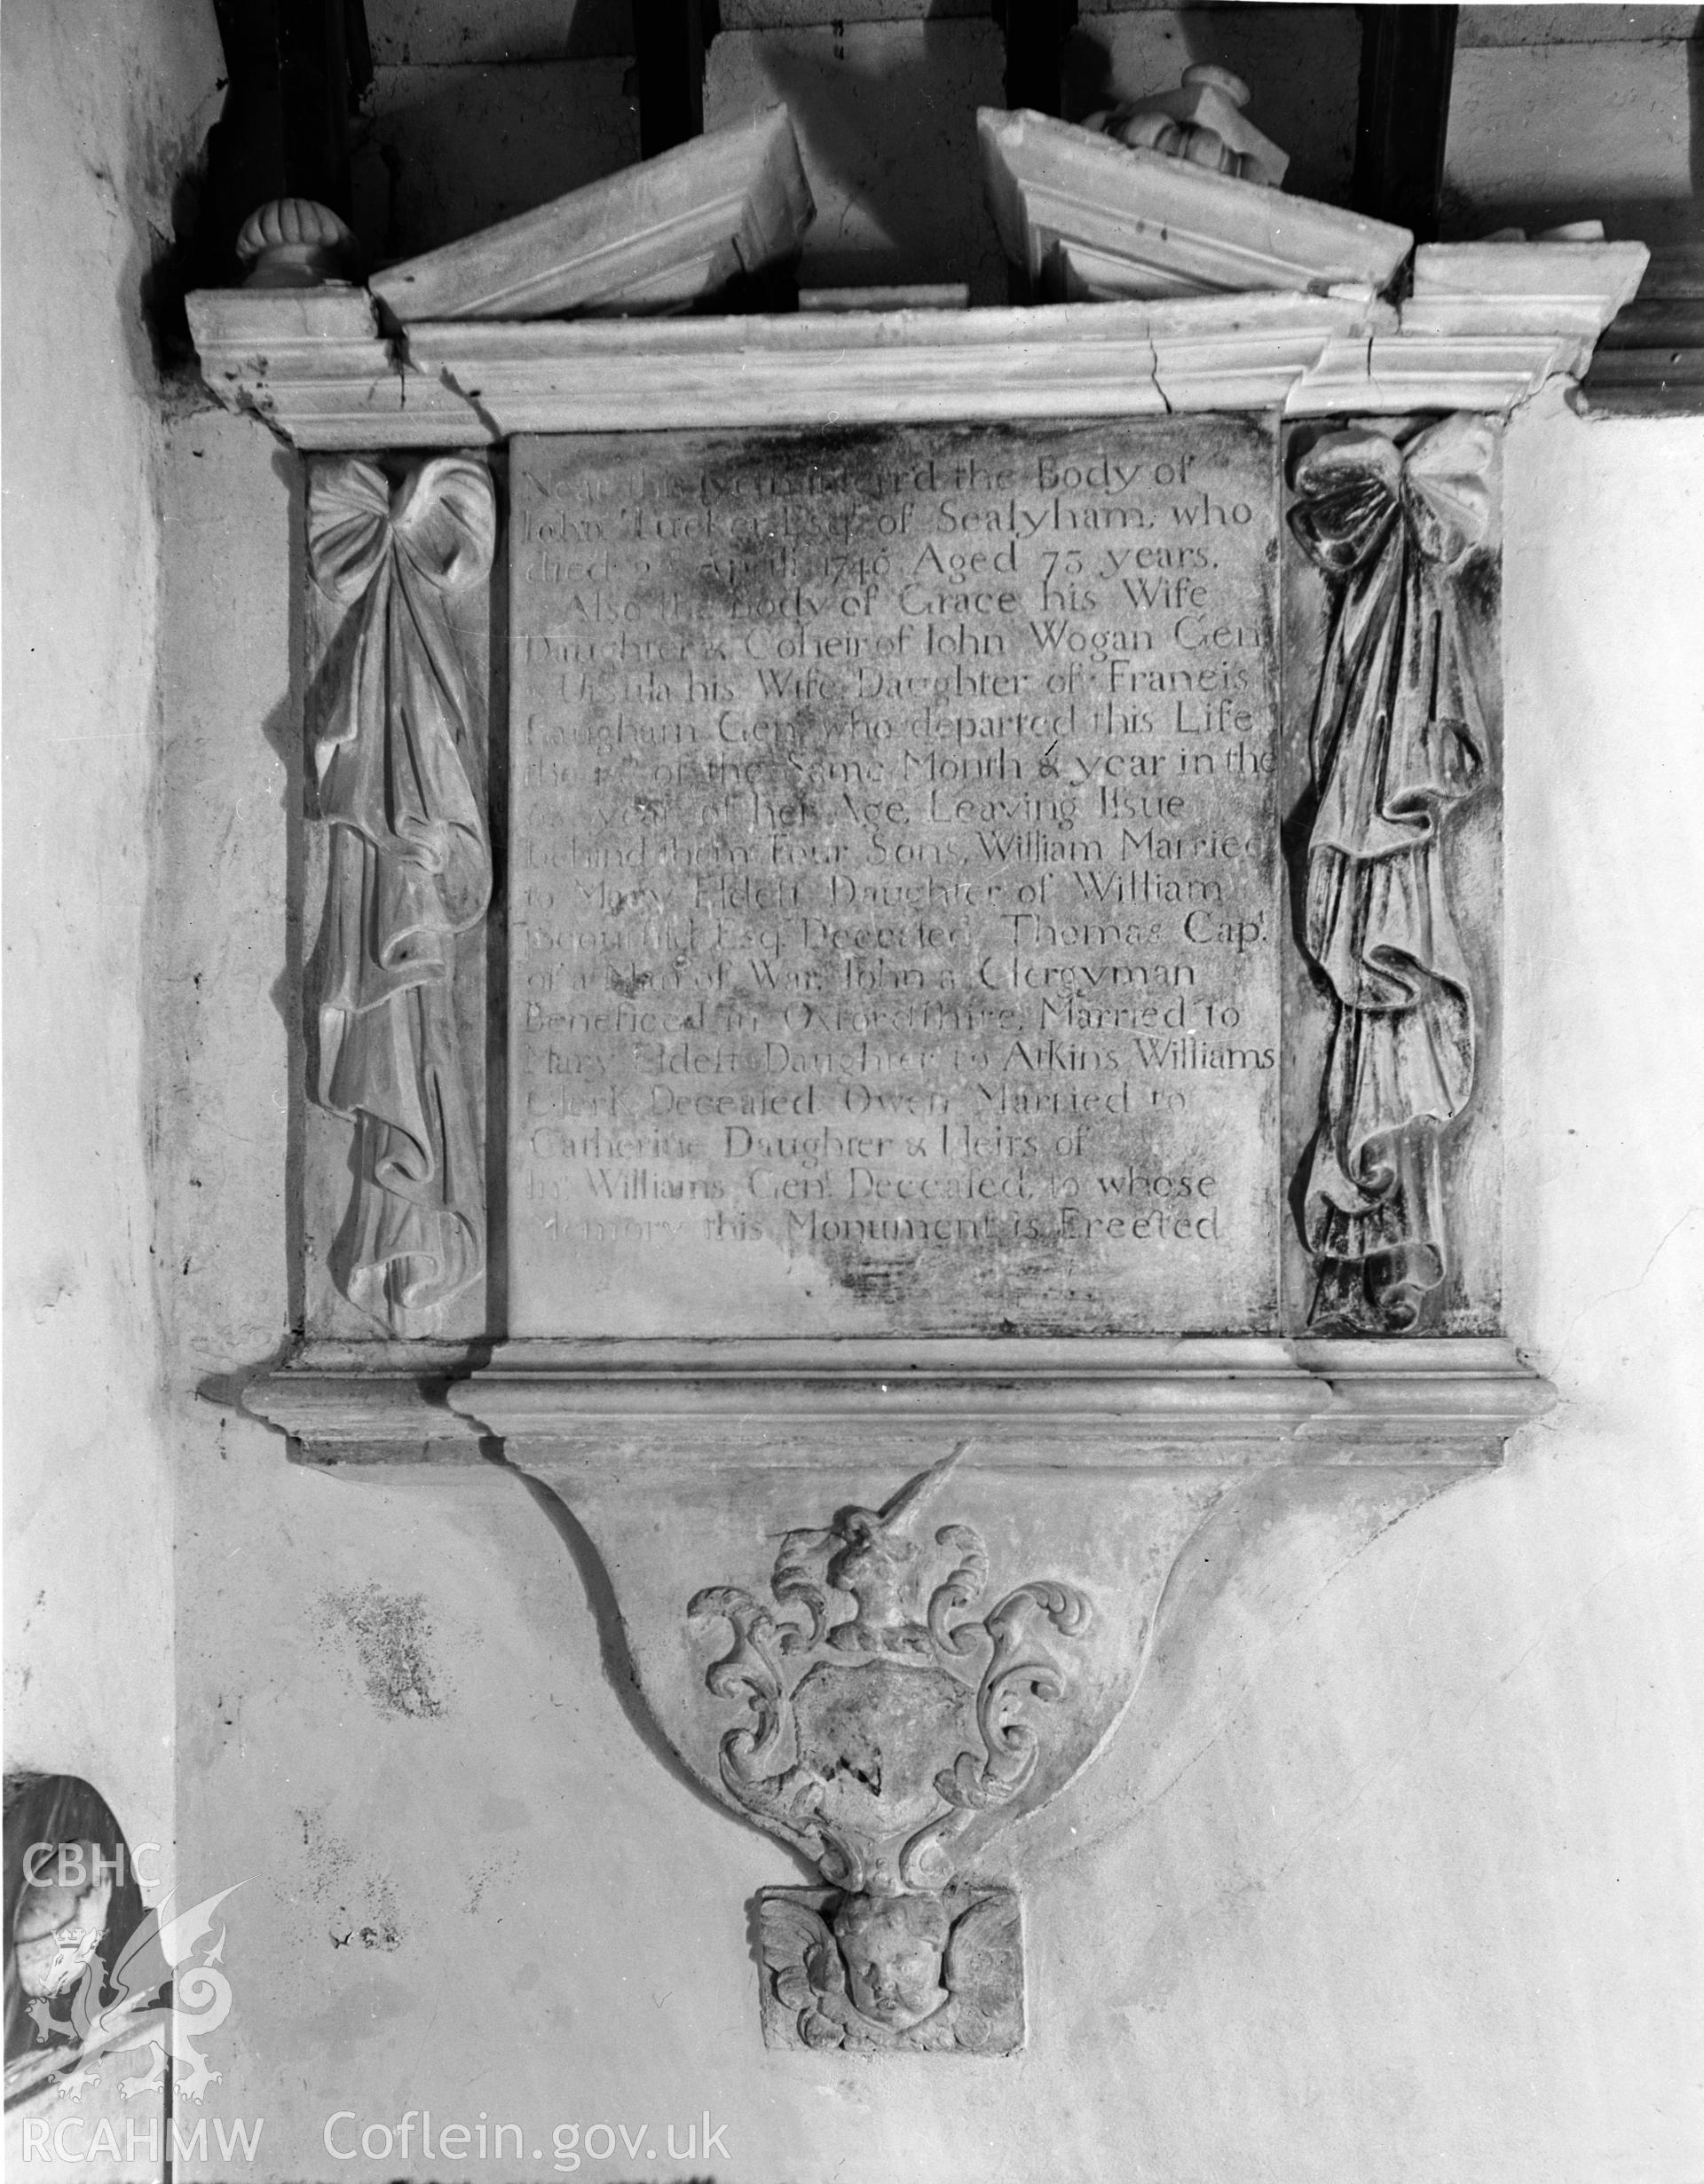 Near this lyeth interr'd the Body of
Iohn Tucker Esqr. of Sealyham, who
died April 1746 Aged 73 years.
Also the Body of Grace his Wife
Daughter & Coheir of Iohn Wogan Gen
Ursula his Wife Daughter of Francis
Laugharn Gen who departed this Life
the of the Same Month & year in the
year of her Age, Leaving Issue
behind them Four Sons, William Married
to Mary Eldest Daughter of William
Esqr. Deceased, Thomas Capt.
of a Man of War, Iohn a Clergyman
Beneficed in Oxfordshire, Married to
Mary Eldest Daughter to Atkins Williams
Clerk Deceased Owen Married to
Catherine Daughter & Heirs of
Williams Gent. Deceased, to whose
Memory this Monument is Erected
CBHC
RCAHMW
Coflein.gov.uk